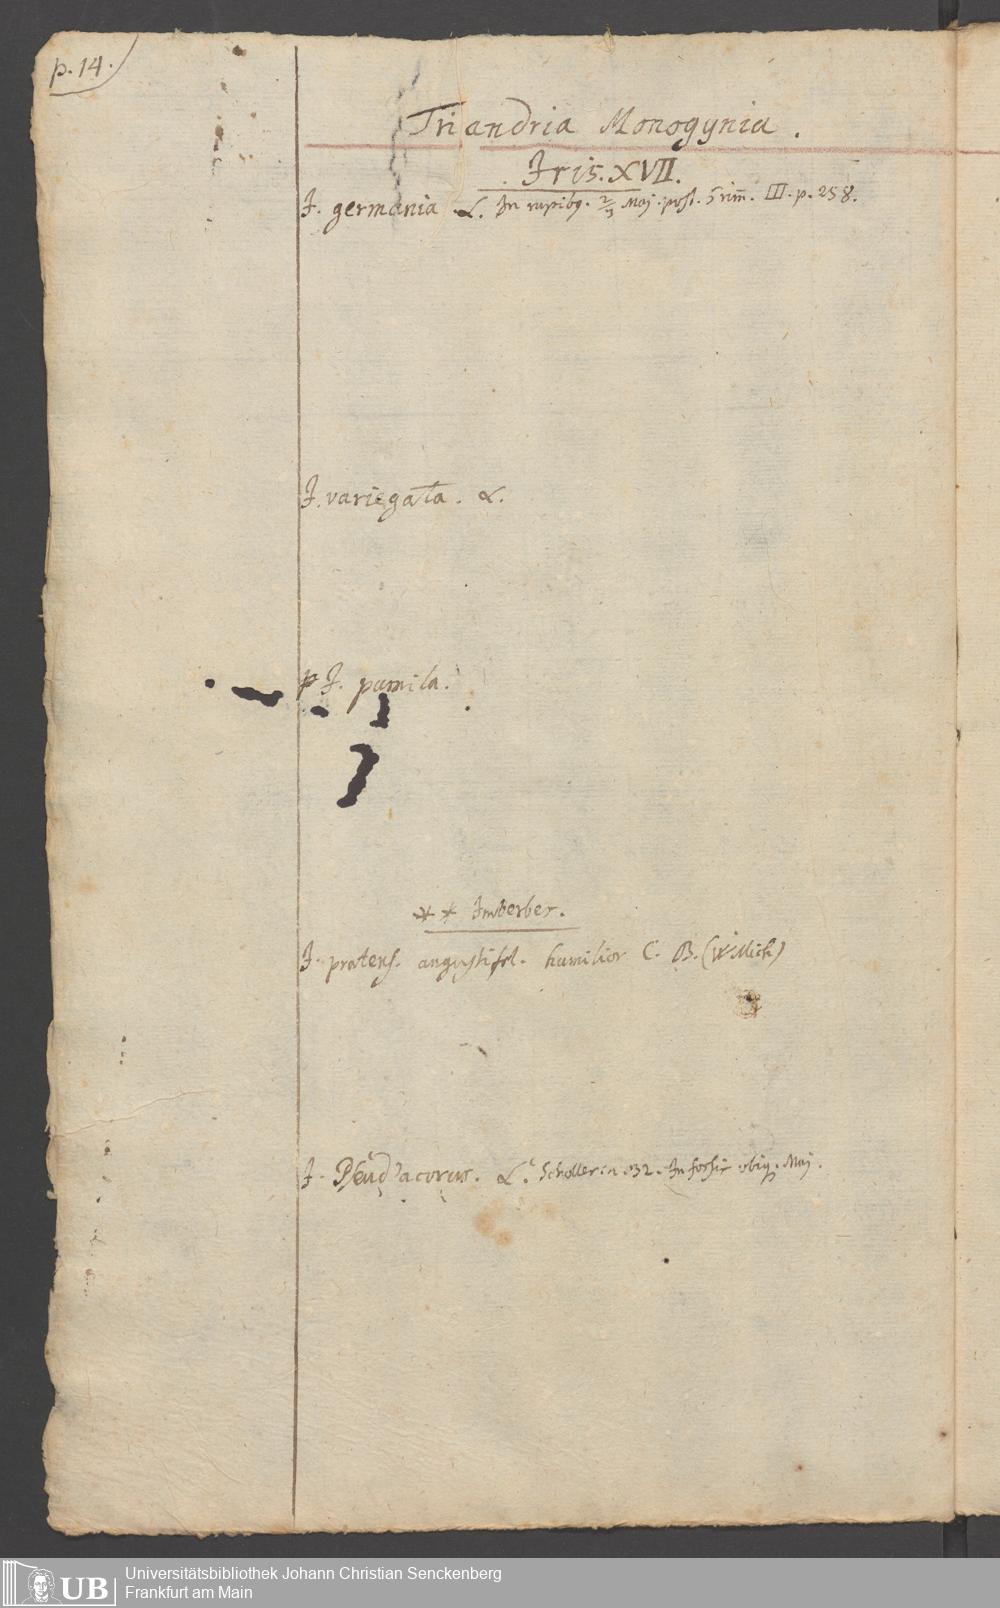 p. 14.
Triandria Monogynia.
Iris. XVII.
I. germania L. In rupibq. 2/3 Maj. post. 5 rim̄. III. p. 258.
I. variegata. L.
p I. pumila.
** Imberber.
I. pratens. angustifol. humilior C. B. (Willich)
I. Pseud'acorus. L. Scholler. n. 32. In fossis ubiq. Maj.
UB Universitätsbibliothek Johann Christian Senckenberg
Frankfurt am Main